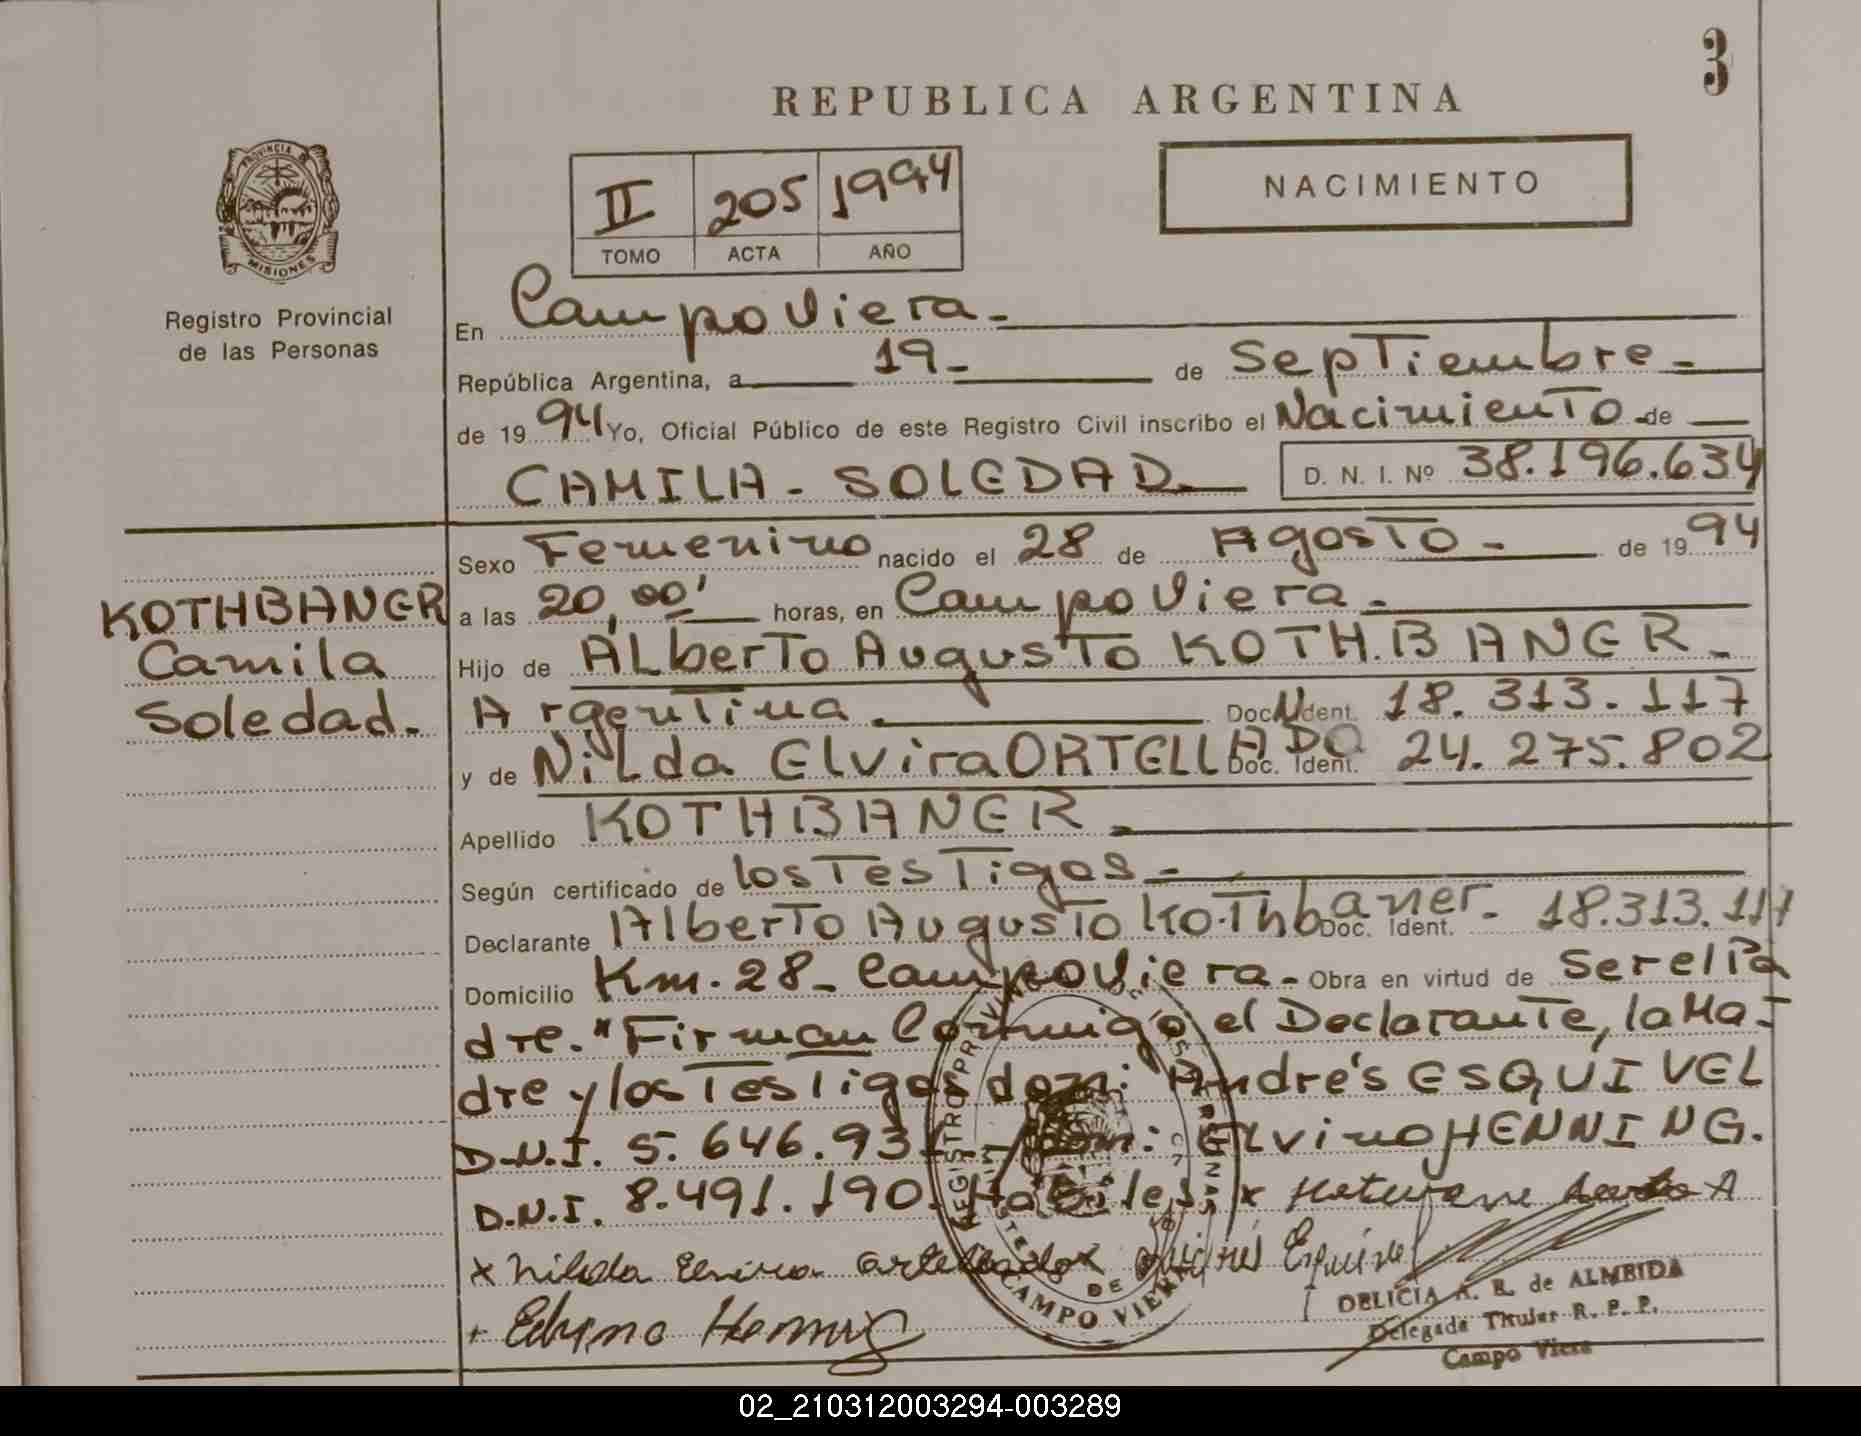 3
REPUBLICA ARGENTINA
PROVINCIA DE
MISIONES
Registro Provincial
de las Personas
II 205 1994
TOMO ACTA AÑO
NACIMIENTO
En Campo Viera.-
República Argentina, a 19- de Septiembre-
de 1994 Yo, Oficial Público de este Registro Civil inscribo el Nacimiento de
CAMILA - SOLEDAD. D. N. I. Nº 38.196.634
Sexo Femenino nacido el 28 de Agosto- de 1994
KOTHBANER
Camila
Soledad.-
a las 20,00' horas, en Campo Viera.-
Hijo de Alberto Augusto KOTH.BANER.-
Argentina.- Doc. Ident. 18.313.117
y de Nilda Elvira ORTELLADO Doc. Ident. 24.275.802
Apellido KOTHBANER.-
Según certificado de los Testigos-
Declarante Alberto Augusto Kothbaner. Doc. Ident. 18.313.117
Domicilio Km. 28- Campo Viera.- Obra en virtud de ser el Pa
dre." Firman Conmigo el Declarante, la Ma-
dre y los Testigos don: Andrés ESQUIVEL
D.N.I. 5.646.93 don: Elvino HENNING.
D.N.I. 8.491.190. Hábiles. x A
x Nilda Elvira Ortellado x Andrés Esquivel
+ Elvino Henning
REGISTRO PROVINCIAL DE LAS PERSONAS
MISIONES
DE
CAMPO VIERA
DELICIA A. R. de ALMEIDA
Delegada Titular R. P. P.
Campo Viera
02_210312003294-003289